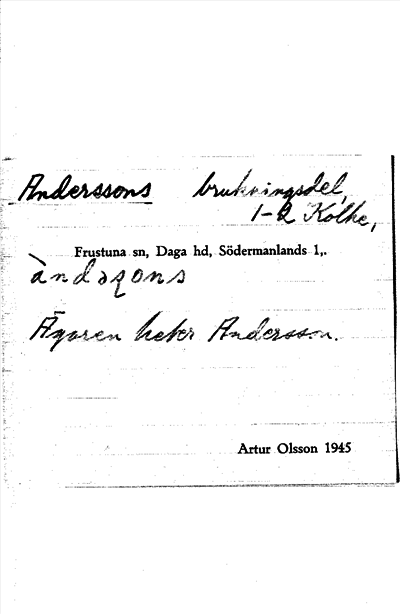 Anderssons brukningsdel,
1-2 Kolke,
Frustuna sn, Daga hd, Södermanlands l,.
àndəʂons
Ägaren heter Andersson.
Artur Olsson 1945